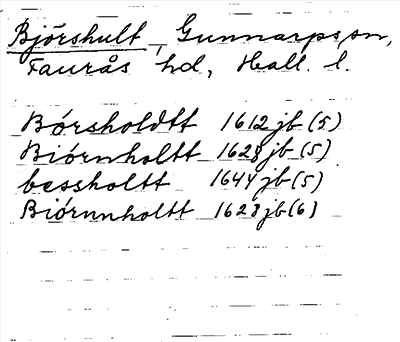 Bjórshult, Gunnarps sn,
Faurås hd, Hall. l.
Bórsholdtt 1612 jb (5)
Biórnholtt 1628 jb (5)
bessholtt 1644 jb (5)
Biórnnholtt 1628 jb (6)